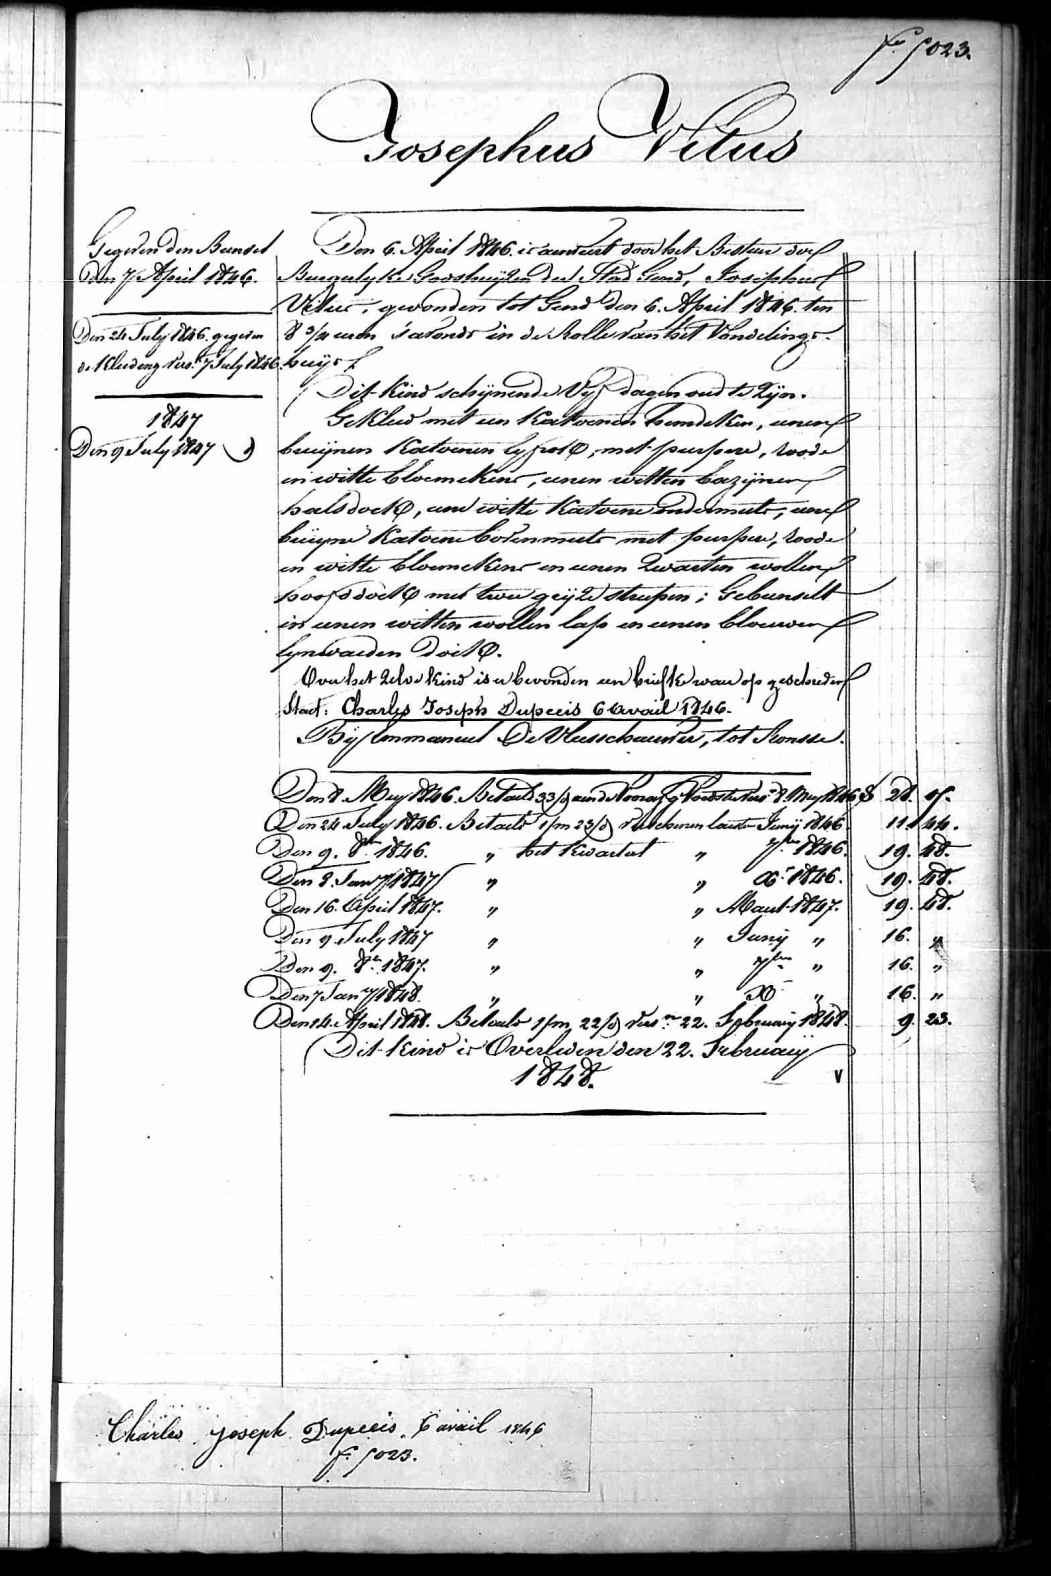 fo 5023.
Josephus Vitus
Gegeven den Bunsel
den 7 April 1846.
Den 24 July 1846. gegeven
de Kleeding vers. 7 July 1846.
1847
Den 9 July 1847
Den 6. April 1846. is aenveert door het Bestier der
Burgerlyke Godshuyzen der Stad Gend, Josephus
Vitus, gevonden tot Gend den 6. April 1846. ten
8 3/4 uren s'avonds in de Rolle van het Vondelings-
huys.
Dit kind schijnende Vyf dagen oud te zijn.
Gekleed met een Katoenen hemdeken, eenen
bruijnen Katoenen lyfrok, met purpere, roode
en witte bloemekens, eenen witten bazijnen
halsdoek, eene witte Katoene ondermuts, eene
bruijne Katoene bovenmuts met purpere, roode
en witte bloemekens en eenen Zwarten wollen
hoofddoek met twee grijze strepen; Gebunselt
in eenen witten wollen lap en eenen blauwen
lynwaeden doek.
Over het zelve kind is er bevonden een briefke waer op geschreven
staet: Charles Joseph Dupecis 6 avail 1846.
Bij Emmanuel De Vleeschauwer, tot Ronsse.
Den 8. Mey 1846. Betaelt 33/d vers. 8. Mey 1846 28.
Den 24 July 1846. Betaelt 1/m 23/d verschenen laest Junij 1846 11. 44.
Den 9. 8er 1846. „ het Kwartael „ 7ber 1846. 19. 48.
Den 8. Jany 1847 „ „ Xr 1846. 19. 48.
Den 16. April 1847. „ „ Maert 1847. 19. 48.
Den 9. July 1847 „ „ Junij „ 16. „
Den 9. 8er 1847. „ „ 7ber „ 16. „
Den 7 Jany 1848. „ „ Xr „ 16. „
Den 14. April 1848. Betaelt 1/m 22/d vers. 22. February 1848. 9. 23.
Dit kind is Overleden den 22. February
1848.
Charles Joseph Dupecis. 6 avail 1846
f. 5023.